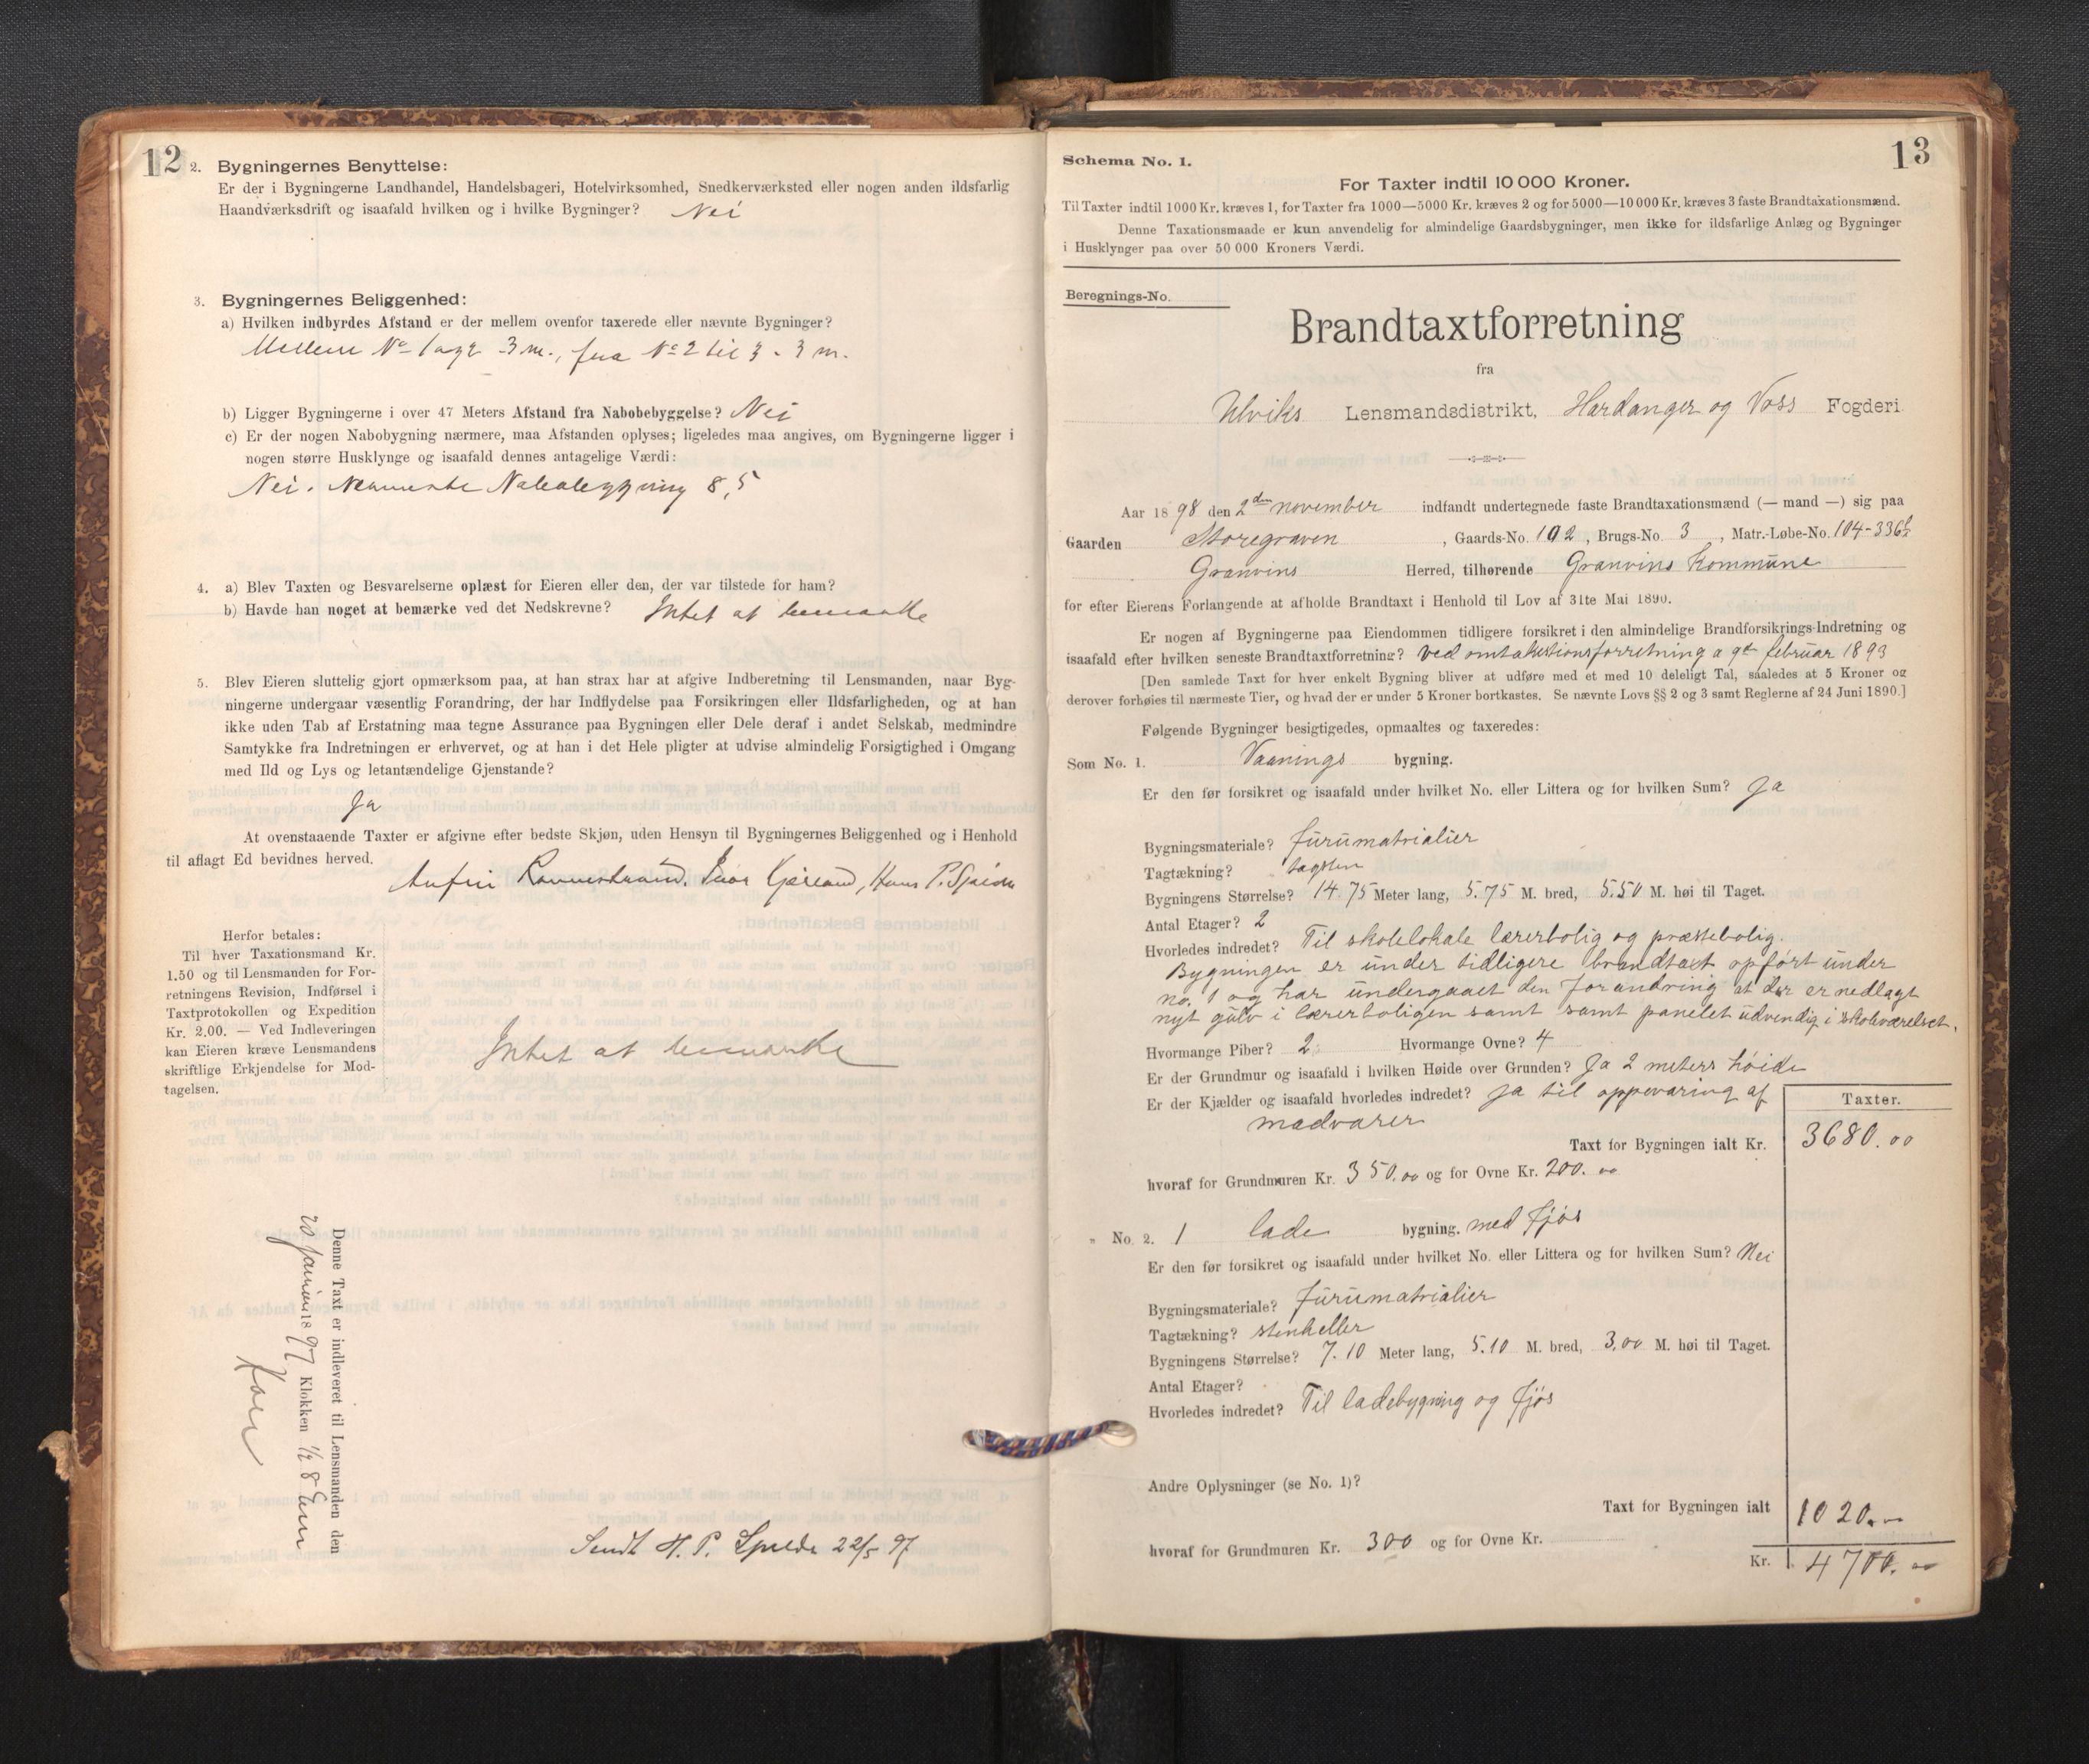 12
2. Bygningernes Benyttelse:
Er der i Bygningerne Landhandel, Handelsbageri, Hotelvirksomhed, Snedkerværksted eller nogen anden ildsfarlig
Haandværksdrift og isaafald hvilken og i hvilke Bygninger? Nei
3. Bygningernes Beliggenhed:
a) Hvilken indbyrdes Afstand er der mellem ovenfor taxerede eller nævnte Bygninger?
Mellem No 1 og 2 3 m., fra No 2 til 3 - 3 m.
b) Ligger Bygningerne i over 47 Meters Afstand fra Nabobebyggelse? Nei
c) Er der nogen Nabobygning nærmere, maa Afstanden oplyses; ligeledes maa angives, om Bygningerne ligger i
nogen større Husklynge og isaafald dennes antagelige Værdi:
Nei. 8,5
4. a) Blev Taxten og Besvarelserne oplæst for Eieren eller den, der var tilstede for ham?
b) Havde han noget at bemærke ved det Nedskrevne? Intet at bemærke
5. Blev Eieren sluttelig gjort opmærksom paa, at han strax har at afgive Indberetning til Lensmanden, naar Byg-
ningerne undergaar væsentlig Forandring, der har Indflydelse paa Forsikringen eller Ildsfarligheden, og at han
ikke uden Tab af Erstatning maa tegne Assurance paa Bygningen eller Dele deraf i andet Selskab, medmindre
Samtykke fra Indretningen er erhvervet, og at han i det Hele pligter at udvise almindelig Forsigtighed i Omgang
med Ild og Lys og letantændelige Gjenstande?
Ja
At ovenstaaende Taxter er afgivne efter bedste Skjøn, uden Hensyn til Bygningernes Beliggenhed og i Henhold
til aflagt Ed bevidnes herved.
Hans P.
Herfor betales:
Til hver Taxationsmand Kr.
1.50 og til Lensmanden for For-
retningens Revision, Indførsel i
Taxtprotokollen og Expedition
Kr. 2.00. — Ved Indleveringen
kan Eieren kræve Lensmandens
skriftlige Erkjendelse for Mod-
tagelsen.
Intet at bemærke
Denne Taxt er indleveret til Lensmanden den
20 Januar 1897 Klokken 1/2 8 Em
Sendt H. P. Spilde 22/5 97
13
Schema No. 1.
For Taxter indtil 10 000 Kroner.
Til Taxter indtil 1000 Kr. kræves 1, for Taxter fra 1000—5000 Kr. kræves 2 og for 5000—10 000 Kr. kræves 3 faste Brandtaxationsmænd.
Denne Taxationsmaade er kun anvendelig for almindelige Gaardsbygninger, men ikke for ildsfarlige Anlæg og Bygninger
i Husklynger paa over 50 000 Kroners Værdi.
Beregnings-No.
Brandtaxtforretning
fra
Ulviks Lensmandsdistrikt, Hardanger og Voss Fogderi
Aar 1898 den 2den november indfandt undertegnede faste Brandtaxationsmænd (— mand —) sig paa
Gaarden Storegraven, Gaards-No. 102, Brugs-No. 3, Matr.-Løbe-No. 104-336
Granvins Herred, tilhørende Granvins Kommune
for efter Eierens Forlangende at afholde Brandtaxt i Henhold til Lov af 31te Mai 1890.
Er nogen af Bygningerne paa Eiendommen tidligere forsikret i den almindelige Brandforsikrings-Indretning og
isaafald efter hvilken seneste Brandtaxtforretning? Ved omtakstionsforretning a 9de februar 1893
[Den samlede Taxt for hver enkelt Bygning bliver at udføre med et med 10 deleligt Tal, saaledes at 5 Kroner og
derover forhøies til nærmeste Tier, og hvad der er under 5 Kroner bortkastes. Se nævnte Lovs §§ 2 og 3 samt Reglerne af 24 Juni 1890.]
Følgende Bygninger besigtigedes, opmaaltes og taxeredes:
Som No. 1. Vaanings bygning.
Er den før forsikret og isaafald under hvilket No. eller Littera og for hvilken Sum? Ja
Bygningsmateriale? furumatrialier
Tagtækning? tagsten
Bygningens Størrelse? 14.75 Meter lang, 5.75 M. bred, 5.50 M. høi til Taget.
Antal Etager? 2
Hvorledes indredet? Til skolelokale lærerbolig og præstebolig.
Bygningen er under tidligere brandtaxt opført under
no. 1 og har undergaaet den forandring at der er nedlagt
nyt gulv i lærerboligen samt samt panelet udvendig i skoleværelset.
Hvormange Piber? 2 Hvormange Ovne? 4
Er der Grundmur og isaafald i hvilken Høide over Grunden? Ja 2 meters høide
Er der Kjælder og isaafald hvorledes indredet? Ja til oppevaring af
madvarer
Taxter.
Taxt for Bygningen ialt Kr. 3680.00
hvoraf for Grundmuren Kr. 350.00 og for Ovne Kr. 200.00
" No. 2. 1 lade bygning. med fjøs
Er den før forsikret og isaafald under hvilket No. eller Littera og for hvilken Sum? Nei
Bygningsmateriale? furumatrialier
Tagtækning? stenheller
Bygningens Størrelse? 7.10 Meter lang, 5.10 M. bred, 3.00 M. høi til Taget.
Antal Etager?
Hvorledes indredet? Til ladebygning og fjøs
Andre Oplysninger (se No. 1)?
Taxt for Bygningen ialt 1020.00
hvoraf for Grundmuren Kr. 300 og for Ovne Kr.
Kr. 4700.00